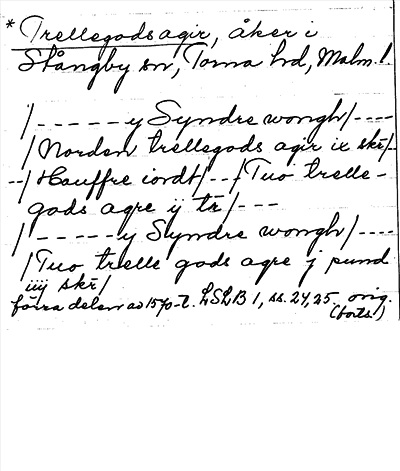 * Trellegods agir, åker i
Stångby sn, Torna hd, Malm. l.
/ - - - - - y Syndre wongh / - - - -
/ Norden trellegods agir ix skr̄ / - -
- - / Hauffre iordt / - - - / Tuo trelle-
gods agre ij tr̄ / - - -
/ - - - - - y Syndre wongh / - - - -
/ Tuo trelle gods agre j pund
iiij skr̄ /
förra delen av 1570-t. LSLB 1, ss. 24, 25. orig.
(forts.)